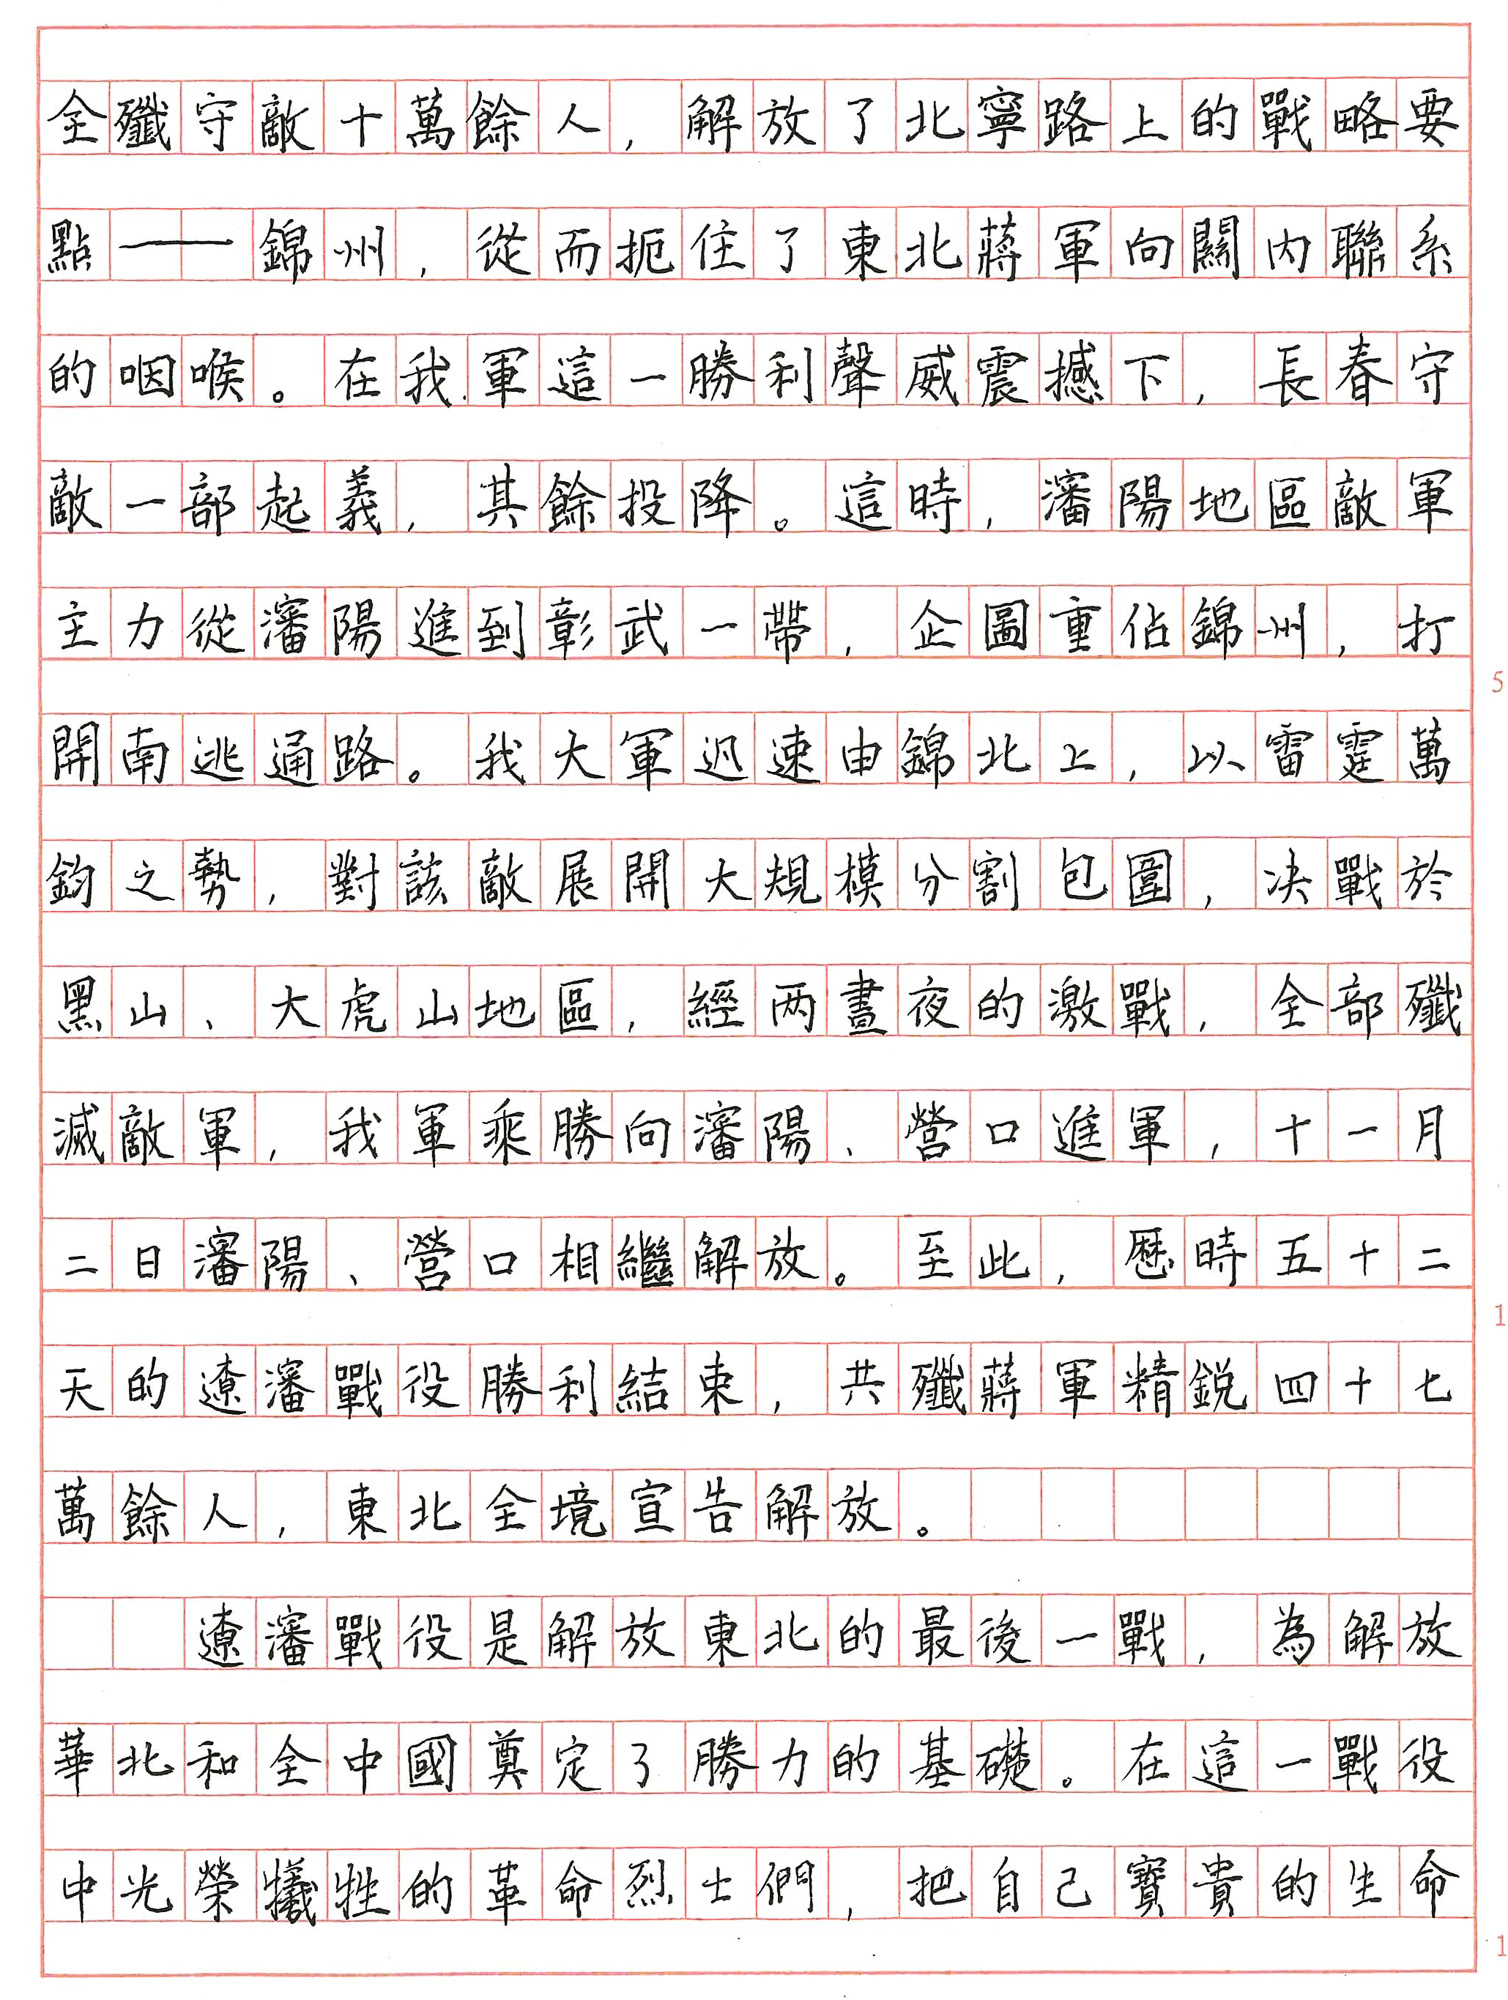 全殲守敵十萬餘人，解放了北寧路上的戰略要
點——錦州，從而扼住了東北蔣軍向關内聯系
的咽喉。在我軍這一勝利聲威震撼下，長春守
敵一部起義，其餘投降。這時，瀋陽地區敵軍
主力從瀋陽進到彰武一帶，企圖重佔錦州，打
開南逃通路。我大軍迅速由錦北上，以雷霆萬
鈞之勢，對該敵展開大規模分割包圍，决戰於
黑山、大虎山地區，經两晝夜的激戰，全部殲
滅敵軍，我軍乘勝向瀋陽、營口進軍，十一月
二日瀋陽、營口相繼解放。至此，歷時五十二
天的遼瀋戰役勝利結束，共殲蔣軍精鋭四十七
萬餘人，東北全境宣告解放。
遼瀋戰役是解放東北的最後一戰，為解放
華北和全中國奠定了勝力的基礎。在這一戰役
中光榮犧牲的革命烈士們，把自己寶貴的生命
5
1
1